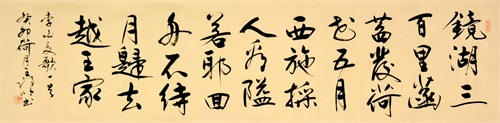 鏡湖三
百里菡
萏發荷
花五月
西施採
人看隘
若耶回
舟不待
月歸去
越王家
李白夏歌一首
癸卯荷月